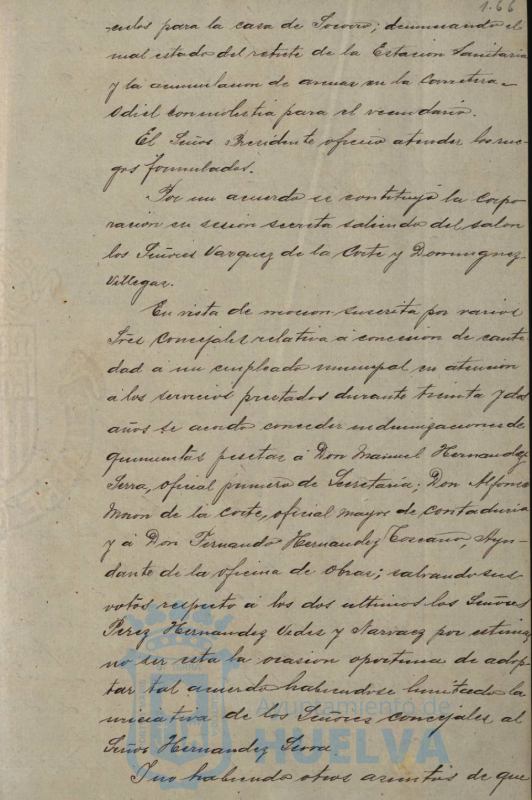 1.66
-culos para la casa de Socorro; denunciando el
mal estado del retrete de la Estacion Sanitaria
y la acumulacion de arenas en la Carretera
Odiel con molestia para el vecindario.
El Señor Presidente ofreció atender los rue-
gos formulados.
Por un acuerdo se constituyó la Corpo-
racion en sesion secreta saliendo del salon
los Señores Vazquez de la Corte y Dominguez
Villegas.
En vista de mocion suscrita por varios
Sres Concejales relativa á concesion de canti-
dad a un empleado municipal en atencion
á los servicios prestados durante treinta y dos
años se acordó conceder indemnizaciones de
quinientas pesetas á Don Manuel Hernandez
Serra, oficial primero de Secretaría; Don Alfonso
Moron de la Corte, oficial mayor de Contaduria
y á Don Fernando Hernandez Toscano, Ayu-
dante de la oficina de Obras; salvando sus
votos respecto á los dos ultimos los Señores
Perez Hernandez Vides y Narvaez por estimar
no ser esta la ocasion oportuna de adop-
tar tal acuerdo habiendose limitado la
iniciativa de los Señores Concejales al
Señor Hernandez Serra.
Y no habiendo otros asuntos de que
Ayuntamiento de
HUELVA